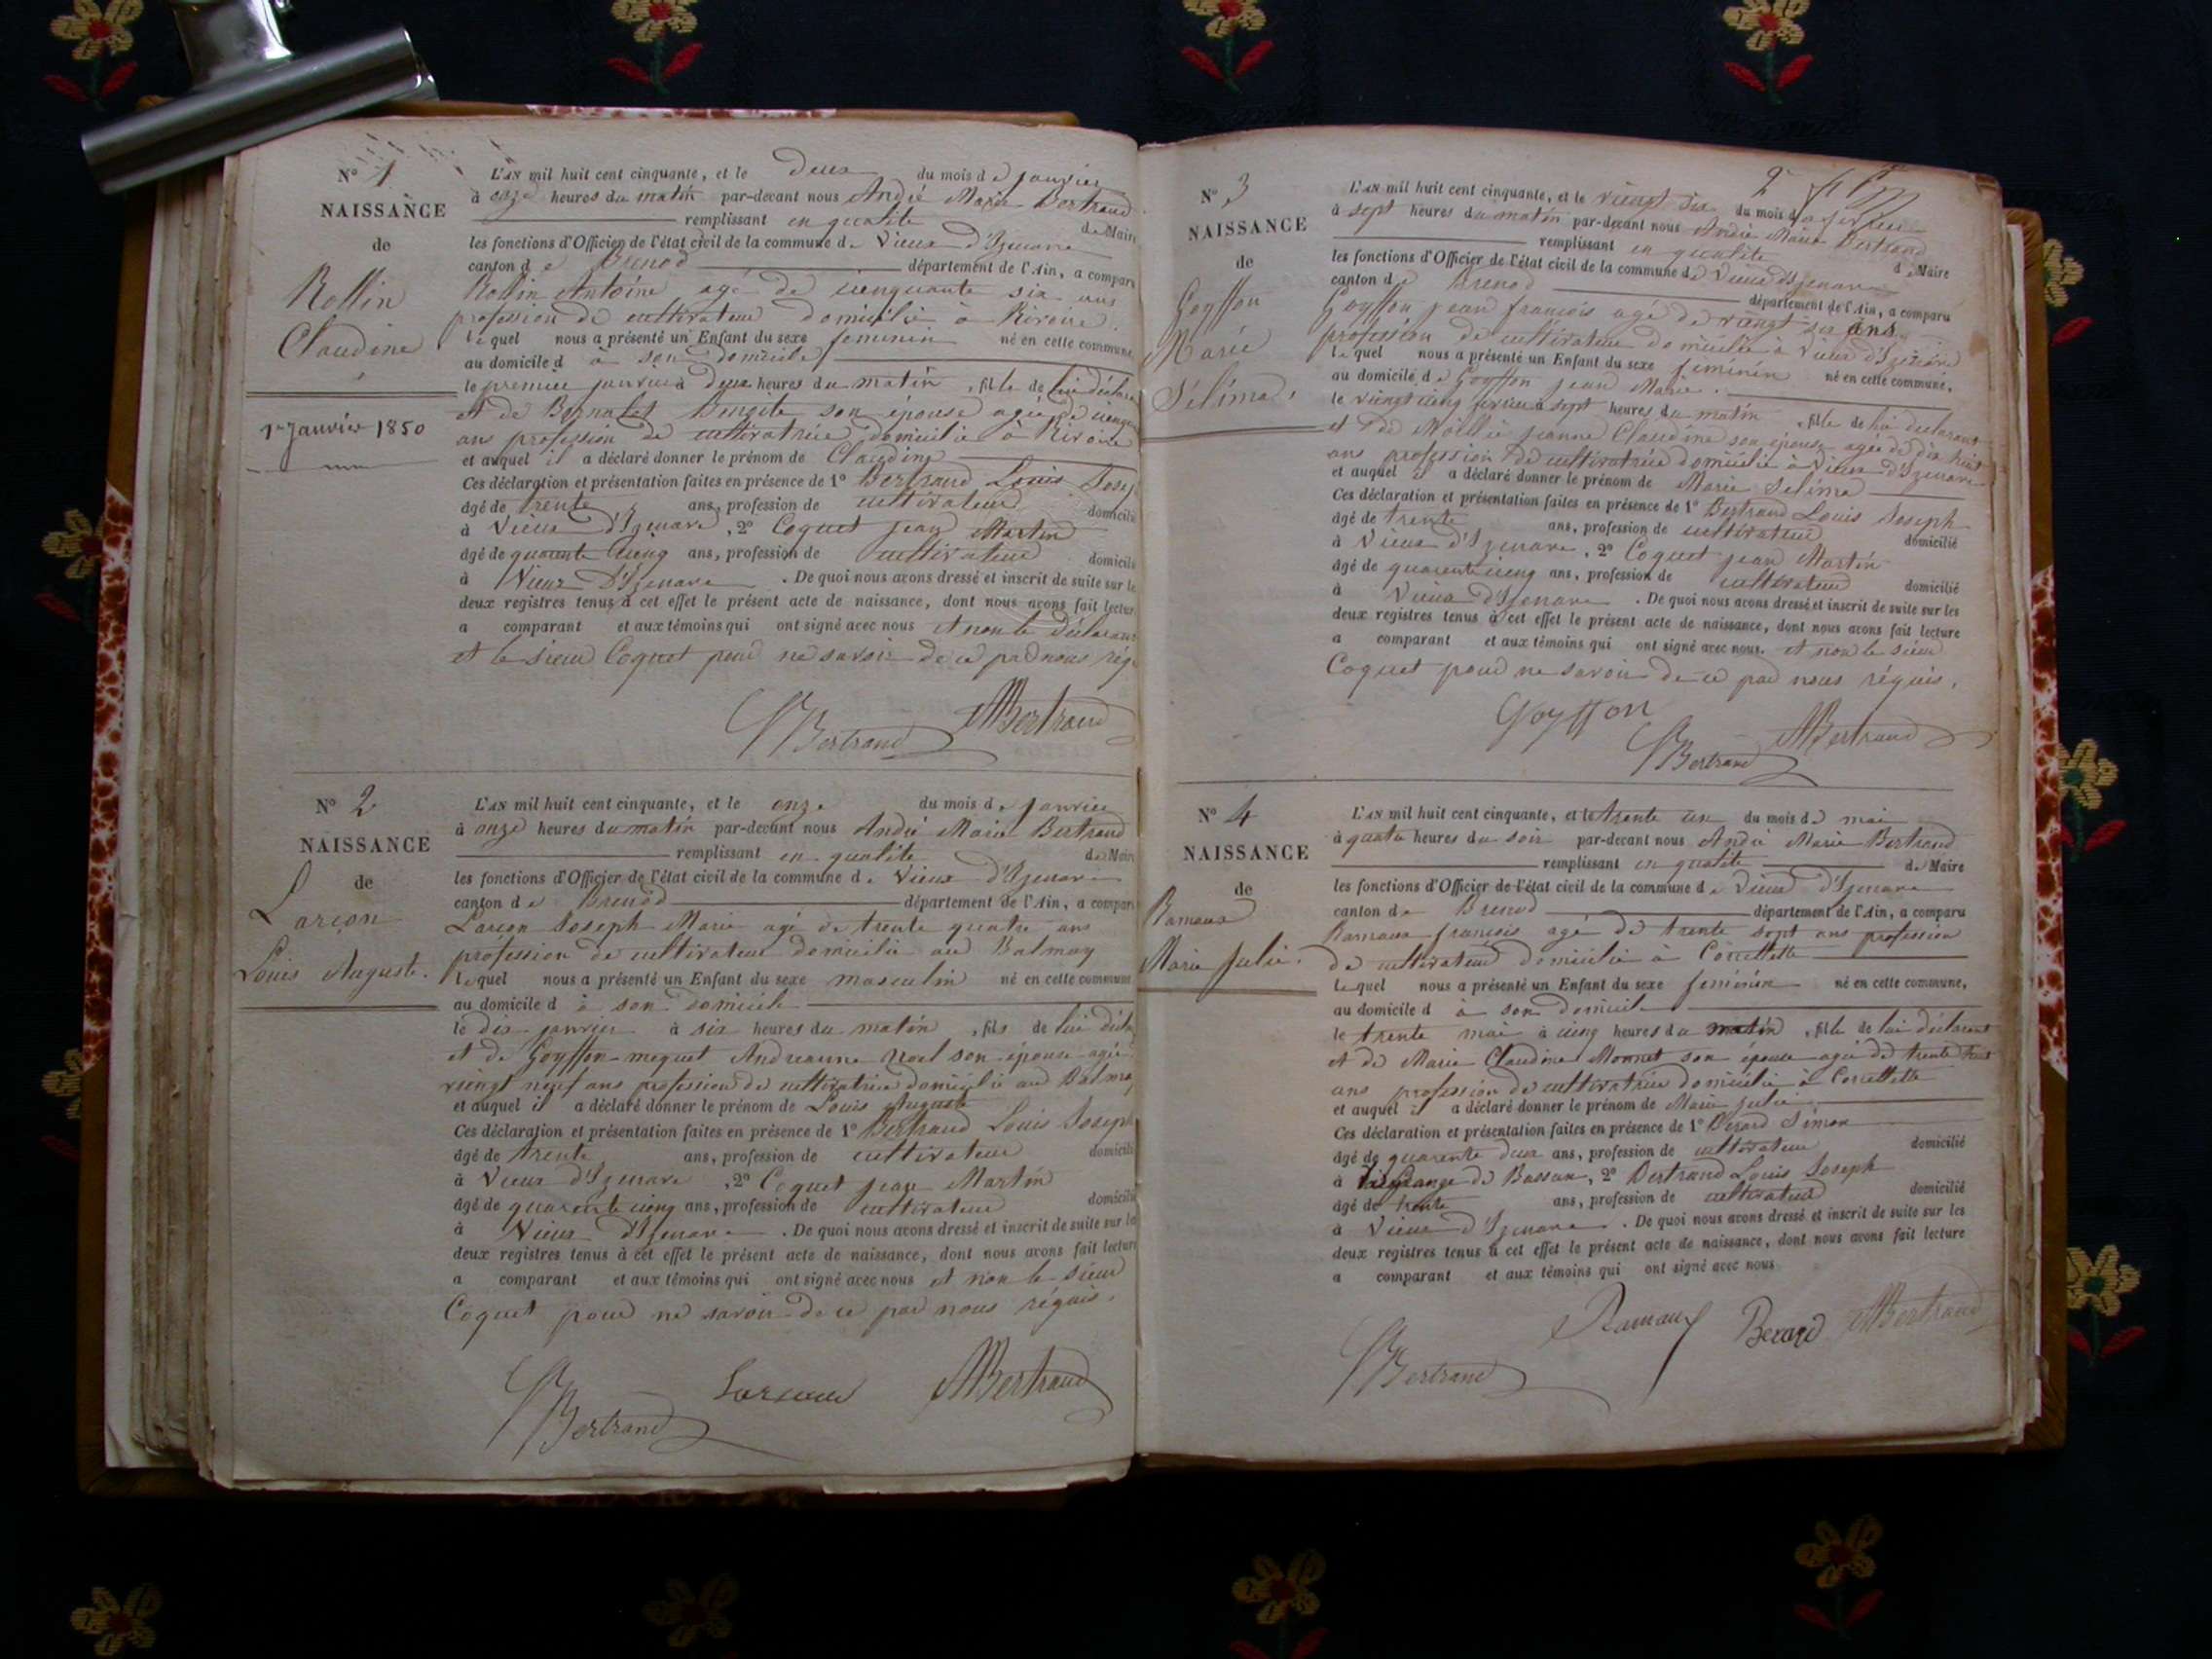 N° 1
NAISSANCE
de
Rollin
Claudine
1er Janvier 1850
L'AN mil huit cent cinquante, et le deux du mois de janvier
à onze heures du matin par-devant nous André Marie Bertrand
remplissant en qualité de Maire
les fonctions d'Officier de l'état civil de la commune de Vieux d'Izenave
canton de Brenod département de l'Ain, a comparu
Rollin Antoine agé de cinquante six ans
profession de cultivateur domicilié à Rivoire
lequel nous a présenté un Enfant du sexe feminin né en cette commune
au domicile d à son domicile
le premier janvier à deux heures du matin, fille de lui déclara
et de Benoite son épouse agée de
ans profession de cultivatrice domicilié à Rivoire
et auquel il a déclaré donner le prénom de Claudine
Ces déclaration et présentation faites en présence de 1° Bertrand Louis Josep
âgé de trente ans, profession de cultivateur domicilié
à Vieux d'Izenave, 2° Coquet jean Martin
âgé de quarante cieng ans, profession de cultivateur domicilié
à Vieux d'Izenave. De quoi nous avons dressé et inscrit de suite sur le
deux registres tenus à cet effet le présent acte de naissance, dont nous avons fait lectur
a comparant et aux témoins qui ont signé avec nous et non le déclarant
et le sieur Coquet pour ne savoir de ce par nous réq
Bertrand AMBertrand
N° 2
NAISSANCE
de
Larçon
Louis Auguste.
L'AN mil huit cent cinquante, et le onze du mois de janvier
à onze heures du matin par-devant nous André Marie Bertrand
remplissant en qualité de Maire
les fonctions d'Officier de l'état civil de la commune de Vieux d'Izenave
canton de Brenod département de l'Ain, a compar
Larçon Joseph Marie agé de trente quatre ans
profession de cultivateur domicilié au Balmay
lequel nous a présenté un Enfant du sexe masculin né en cette commune
au domicile d à son domicile
le dix janvier à six heures du matin, fils de lui décla
et de Goyffon-mequet Andreanne Noel son épouse agée
vieingt neuf ans profession de cultivatrice domicilié au Balma
et auquel il a déclaré donner le prénom de Louis Auguste
Ces déclaration et présentation faites en présence de 1° Bertrand Louis Joseph
âgé de trente ans, profession de cultivateur domicilié
à Vieux d'Izenave, 2° Coquet jean Martin
âgé de quarente cieng ans, profession de cultivateur domicilié
à Vieux d'Izenave. De quoi nous avons dressé et inscrit de suite sur le
deux registres tenus à cet effet le présent acte de naissance, dont nous avons fait lectur
a comparant et aux témoins qui ont signé avec nous et non le sieur
Coquet pour ne savoir de ce par nous réquis.
Bertrand AMBertrand
2
N° 3
NAISSANCE
de
Goyffon
Marie
Sélima.
L'AN mil huit cent cinquante, et le vieingt six du mois de fevrier
à sept heures du matin par-devant nous André Marie Bertrand
remplissant en qualité de Maire
les fonctions d'Officier de l'état civil de la commune de Vieux d'Izenave
canton de Brenod département de l'Ain, a comparu
Goyffon jean françois agé de vieingt six ans
profession de cultivateur domicilié à Vieux d'Izenave
lequel nous a présenté un Enfant du sexe feminin né en cette commune,
au domicile de Goyffon jean Marie.
le vieingt cieng fevrier à sept heures du matin, fille de lui declarant
et de jeanne Claudine son épouse agée de dix huit
ans profession de cultivatrice domicilié à Vieux d'Izenave
et auquel il a déclaré donner le prénom de Marie Selima
Ces déclaration et présentation faites en présence de 1° Bertrand Louis Joseph
âgé de trente ans, profession de cultivateur domicilié
à Vieux d'Izenave, 2° Coquet jean Martin
âgé de quarente cieng ans, profession de cultivateur domicilié
à Vieux d'Izenave. De quoi nous avons dressé et inscrit de suite sur les
deux registres tenus à cet effet le présent acte de naissance, dont nous avons fait lecture
a comparant et aux témoins qui ont signé avec nous. et non le sieur
Coquet pour ne savoir de ce par nous réquis.
Goyffon
Bertrand AMBertrand
N° 4
NAISSANCE
de
Ramaux
Marie Julie.
L'AN mil huit cent cinquante, et le trente un du mois de mai
à quatre heures du soir par-devant nous André Marie Bertrand
remplissant en qualité de Maire
les fonctions d'Officier de l'état civil de la commune de Vieux d'Izenave
canton de Brenod département de l'Ain, a comparu
Ramaux françois agé de trente sept ans profession
de cultivateur domicilié à Corcellette
lequel nous a présenté un Enfant du sexe féminin né en cette commune,
au domicile d à son domicile
le trente mai à cieng heures du matin, fille de lui déclarant
et de Marie Claudine Monnet son épouse agée de trente huit
ans profession de cultivatrice domicilié à Corcellette
et auquel il a déclaré donner le prénom de Marie julie
Ces déclaration et présentation faites en présence de 1° Berard Simon
âgé de quarente deux ans, profession de cultivateur domicilié
à grange de Bassan, 2° Bertrand Louis Joseph
âgé de trente ans, profession de cultivateur domicilié
à Vieux d'Izenave. De quoi nous avons dressé et inscrit de suite sur les
deux registres tenus à cet effet le présent acte de naissance, dont nous avons fait lecture
a comparant et aux témoins qui ont signé avec nous
Ramaux Berard AMBertrand
Bertrand